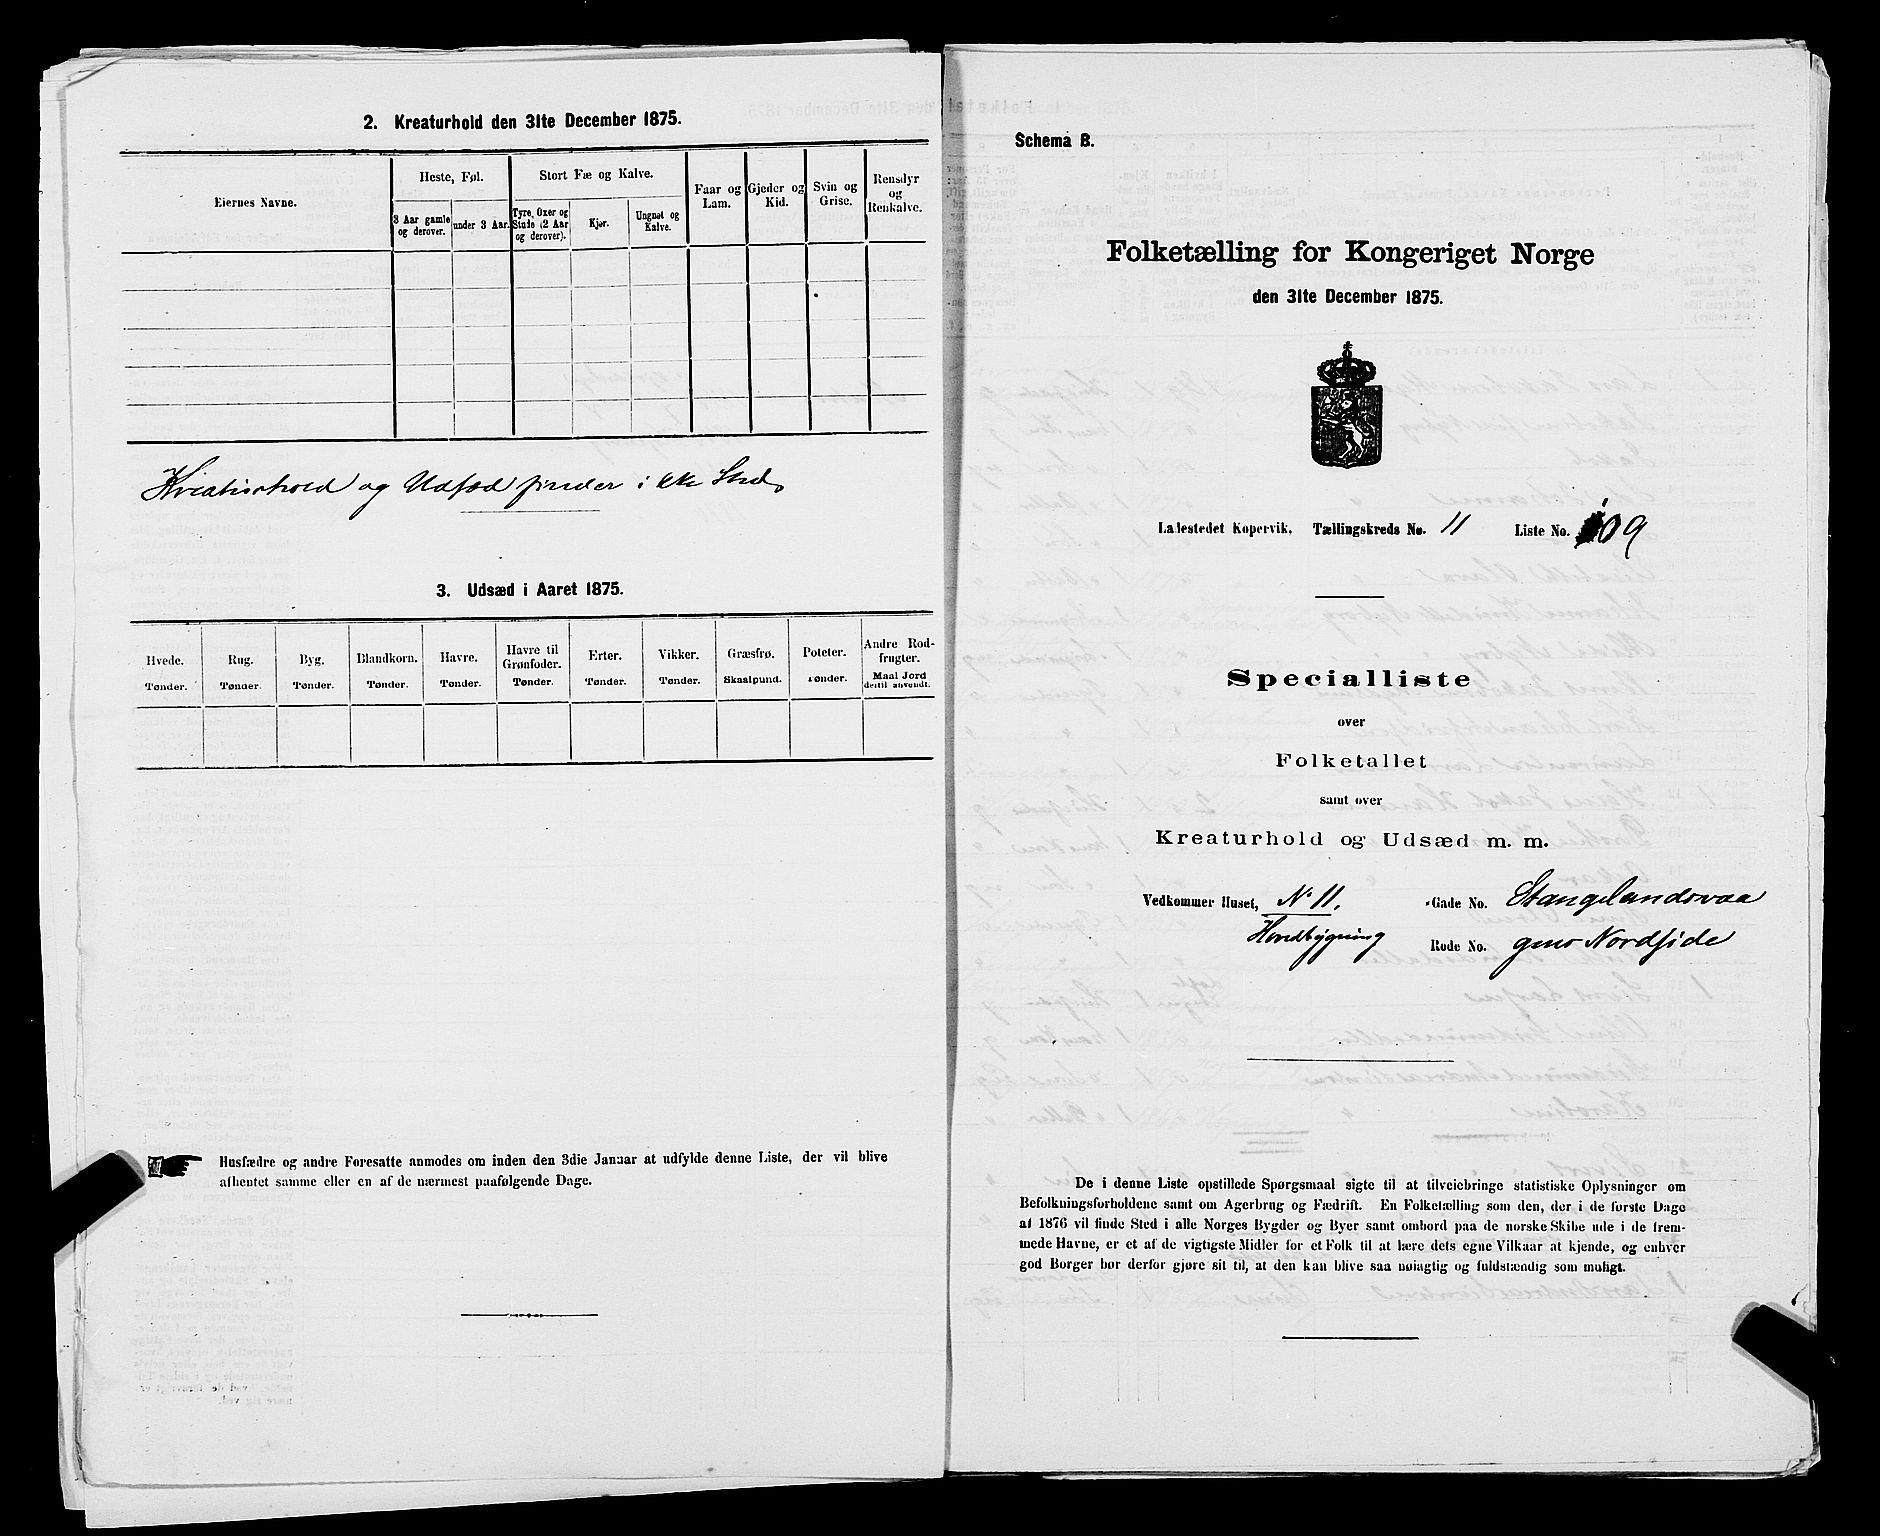 2. Kreaturhold den 31te December 1875.
Eiernes Navne.
Heste, Føl.
Stort Fæ og Kalve.
Faar og Lam.
Gjeder og Kid.
Svin og Grise.
Rensdyr og Renkalve.
3 Aar gamle og derover.
under 3 Aar.
Tyre, Oxer og Stude (2 Aar og derover).
Kjør.
Ungnøt og Kalve.
Kreaturhold og Udsæd finder ikke Sted
3. Udsæd i Aaret 1875.
Hvede.
Rug.
Byg.
Blandkorn.
Havre.
Havre til Grønfoder.
Erter.
Vikker.
Græsfrø.
Poteter.
Andre Rodfrugter.
Tønder.
Tønder.
Tønder.
Tønder.
Tønder.
Tønder.
Tønder.
Tønder.
Skaalpund.
Tønder.
Maal Jord dertil anvendt.
Husfædre og andre Foresatte anmodes om inden den 3die Januar at udfylde denne Liste, der vil blive
afhentet samme eller en af de nærmest paafølgende Dage.
Schema B.
Folketælling for Kongeriget Norge
den 31te December 1875.
Ladestedet Kopervik. Tællingskreds No. 11 Liste No. 109
Specialliste
over
Folketallet
samt over
Kreaturhold og Udsæd m. m.
Vedkommer Huset, No 11, Gade No. Stangelandsvaa
Rode No. Nordside
De i denne Liste opstillede Spørgsmaal sigte til at tilveiebringe statistiske Oplysninger om
Befolkningsforholdene samt om Agerbrug og Fædrift. En Folketælling som den, der i de første Dage
af 1876 vil finde Sted i alle Norges Bygder og Byer samt ombord paa de norske Skibe ude i de frem-
mede Havne, er et af de vigtigste Midler for et Folk til at lære dets egne Vilkaar at kjende, og enhver
god Borger bør derfor gjøre sit til, at den kan blive saa nøiagtig og fuldstændig som muligt.